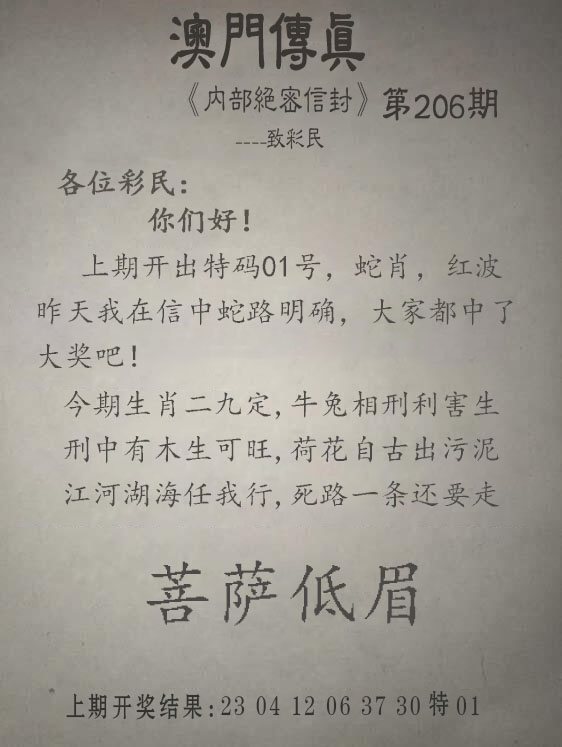 澳門傳真
《内部絕密信封》第206期
----致彩民
各位彩民:
你们好!
上期开出特码01号，蛇肖，红波
昨天我在信中蛇路明确，大家都中了
大奖吧!
今期生肖二九定,牛兔相刑利害生
刑中有木生可旺,荷花自古出污泥
江河湖海任我行,死路一条还要走
菩萨低眉
上期开奖结果:23 04 12 06 37 30 特 01